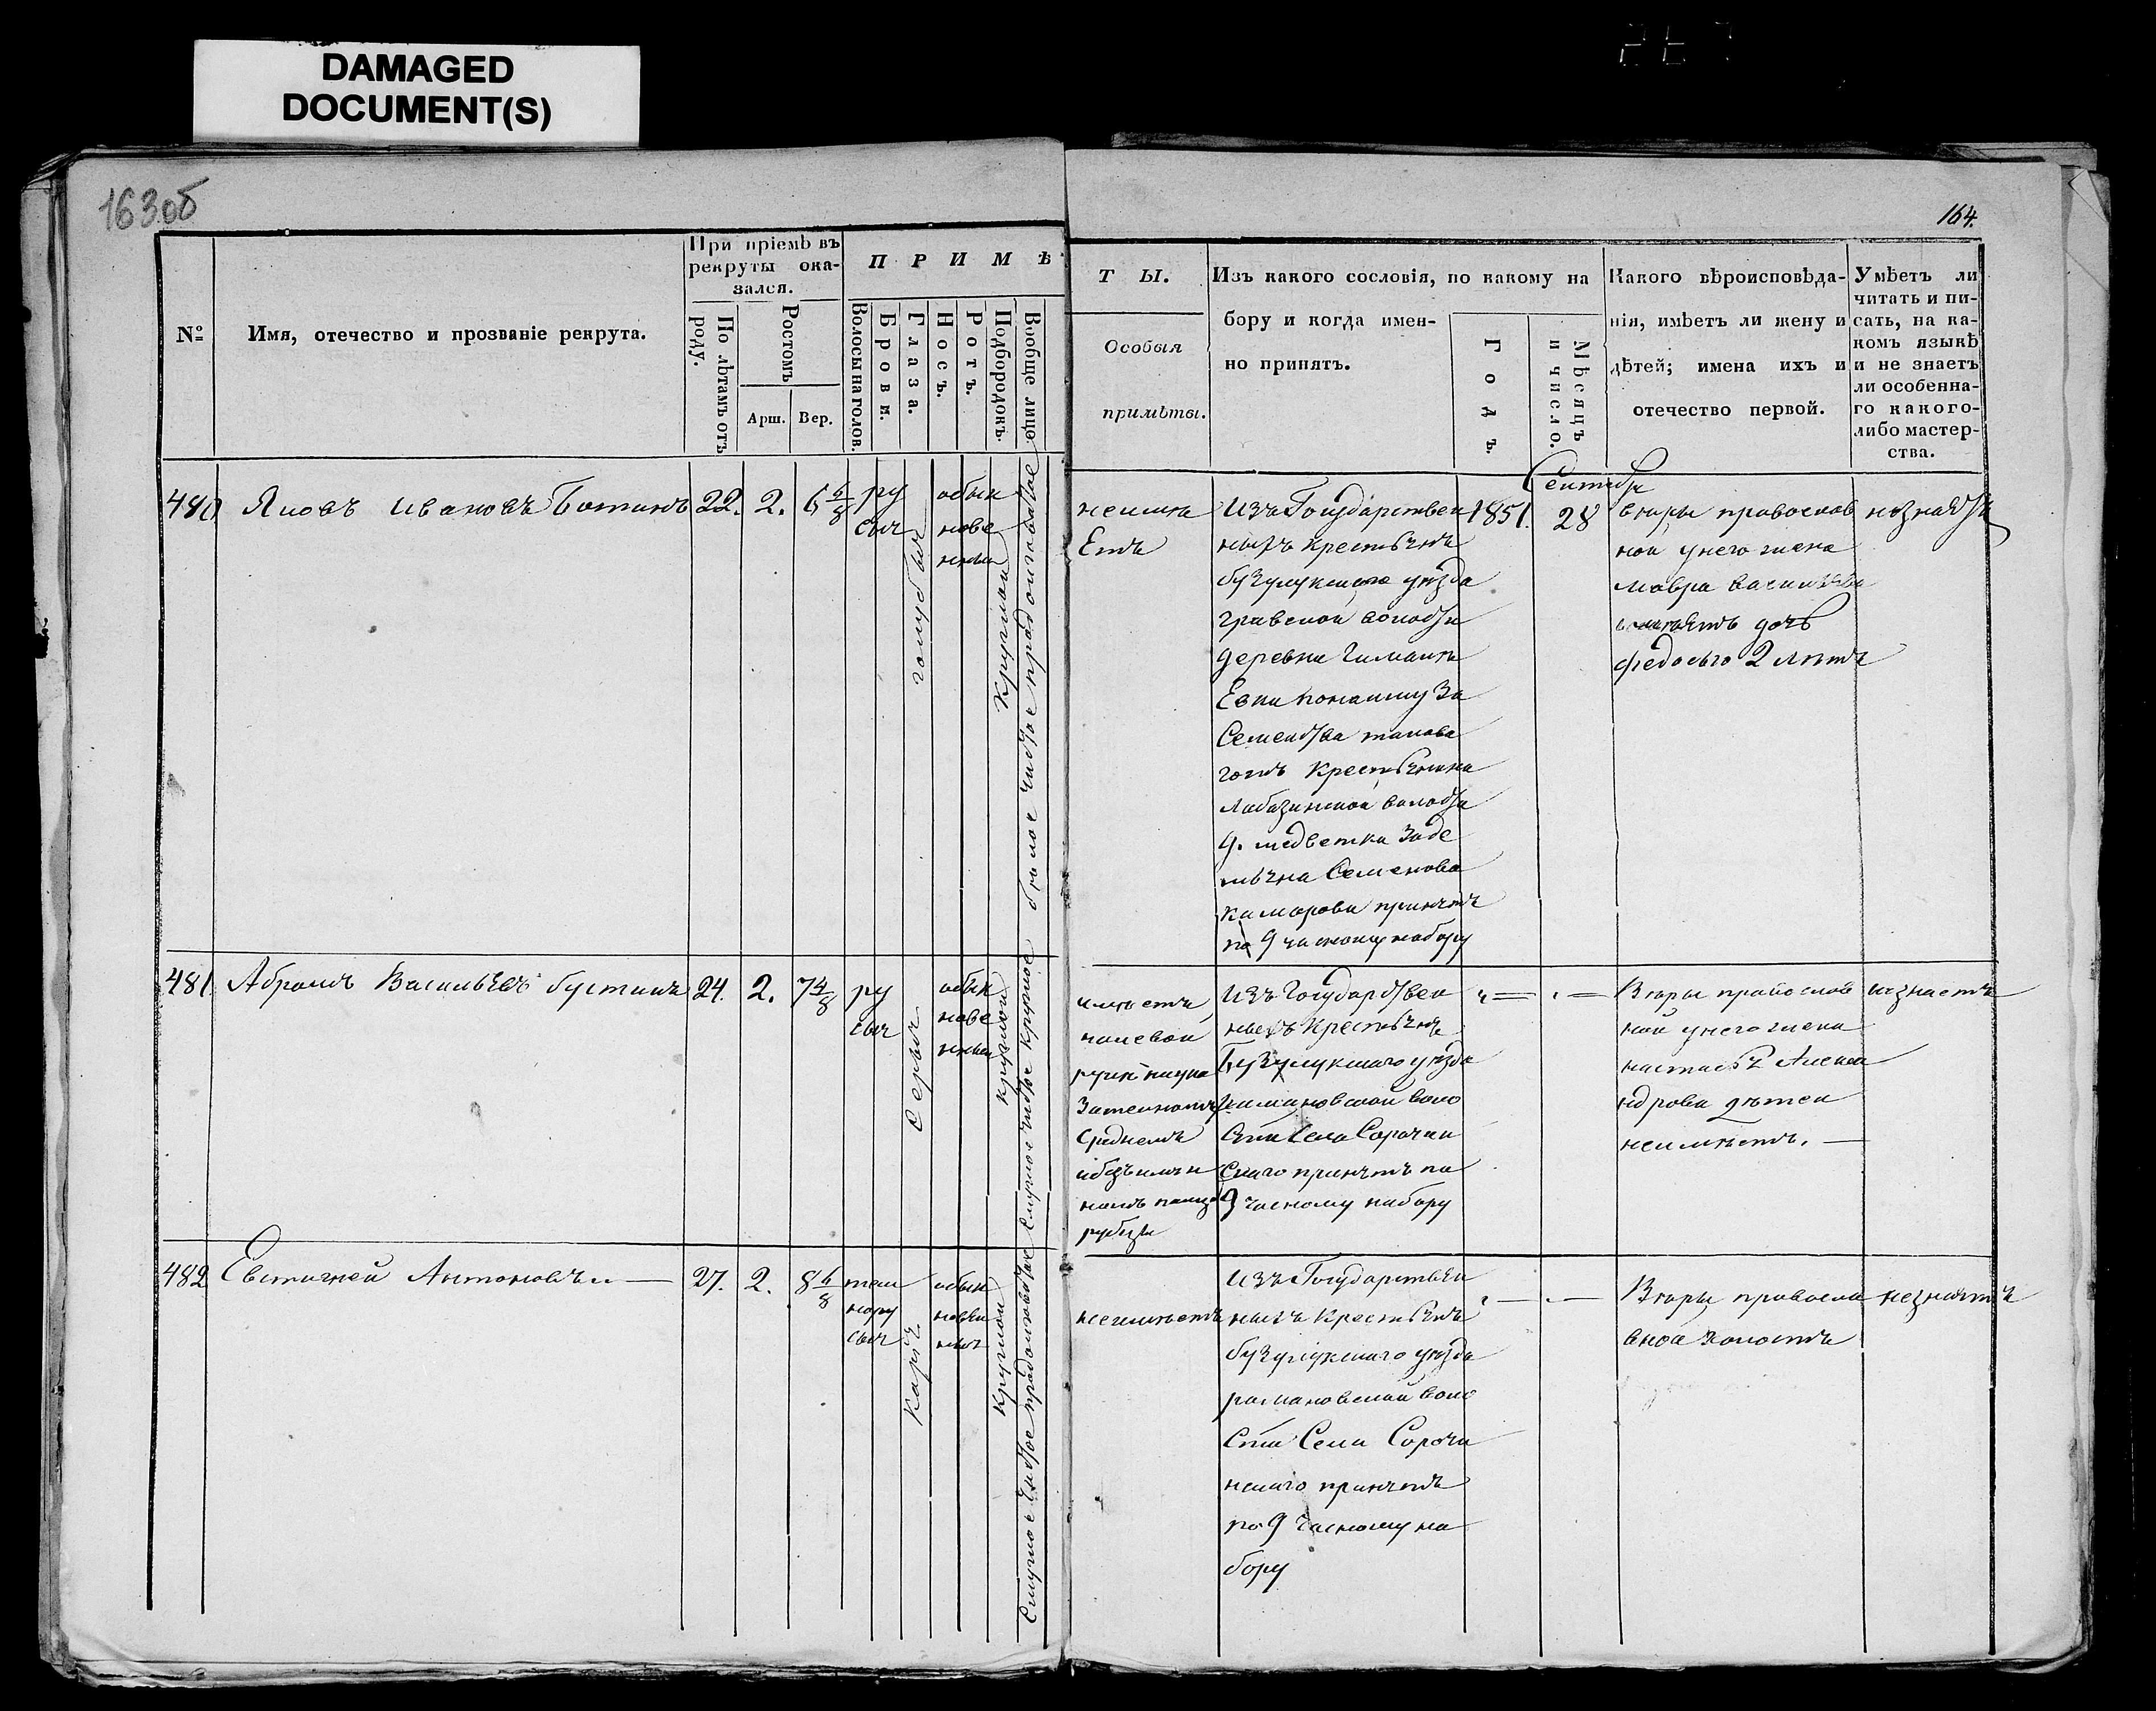 DAMAGED
DOCUMENT(S)
163об
164.
№
Имя, отечество и прозваніе рекрута.
При пріемѣ въ
рекруты ока-
зался.
По лѣтамъ отъ
роду.
Ростомъ
Арш.
Вер.
ПРИМѢ
Волосы на голов.
Брови.
Глаза.
Носъ.
Ротъ.
Подбородокъ.
Вообще лицо.
ТЫ.
Особыя
примѣты.
Изъ какого сословія, по какому на
бору и когда имен-
но принятъ.
Годъ.
Мѣсяцъ
и число.
Какого вѣроисповѣда-
нія, имѣетъ ли жену и
дѣтей; имена ихъ и
отечество первой.
Умѣетъ ли
читать и пи-
сать, на ка-
комъ языкѣ
и не знаетъ
ли особенна-
го какого-
либо мастер-
ства.
480
Яковъ Ивановъ
22.
2.
6 6/8
ру
сыя
голубыя
обык
нове
нныи
круглой
бѣлое чистое продолговатое
неимѣ
Етъ
Изъ Государствен
ныхъ крестьянъ
бузулукскаго уезда
волости
деревни
за
Семейства
крестьянина
волости
д. медветка
Семенова
принятъ
по 9 часному набору
1851.
Сентября
28
вѣры православ
ной у него жена
мавра васильева
имѣетъ дочь
федосью 2 лѣтъ
незнаетъ
481.
Абрамъ Васильевъ бустинъ
24.
2.
7 4/8
ру
сыя
Серыя
обык
нове
нныи
круглой
Смуглое чистое круглое
имѣетъ
налевой
руке
Среднемъ
рубцы
Изъ Государствен
ныхъ крестьянъ
Бузулукскаго уезда
волo
сти Села Сорочин
Скаго принятъ по
9 часному набору
Вѣры православ
ной у него жена
настасья Алекса
ндрова детей
неимѣетъ. —
незнаетъ
482
Евстигней Антоновъ —
27.
2.
8 6/8
тем
нору
сыя
Карія
обык
новен
ныя
круглой
Смуглое чистое продолговатое
неимѣетъ
Изъ Государствен
ныхъ крестьянъ
бузулукскаго уезда
романовской воло
Сти Села Сорочи
нскаго принятъ
по 9 часному на
бору
Вѣры правосла
вной холостъ
незнаетъ